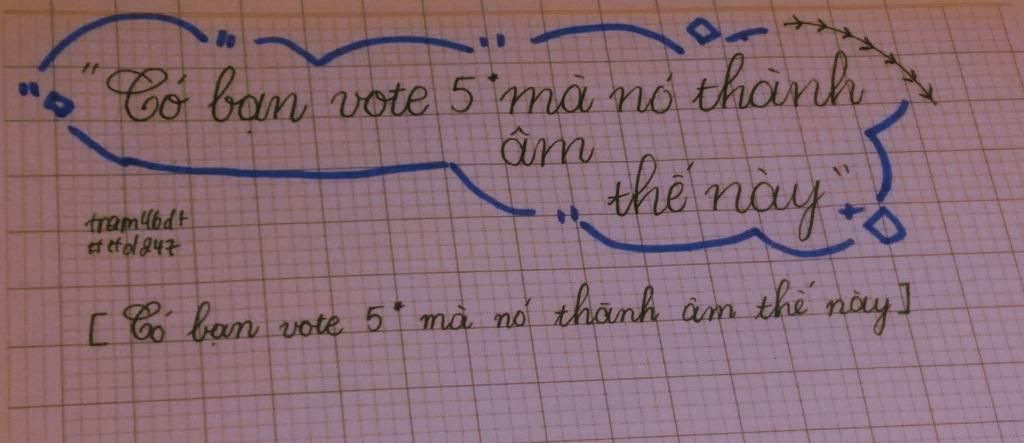 "Có bạn vote 5* mà nó thành
âm
thế này"
tram46dt
ttttd247
[ Có bạn vote 5* mà nó thành âm thế này ]